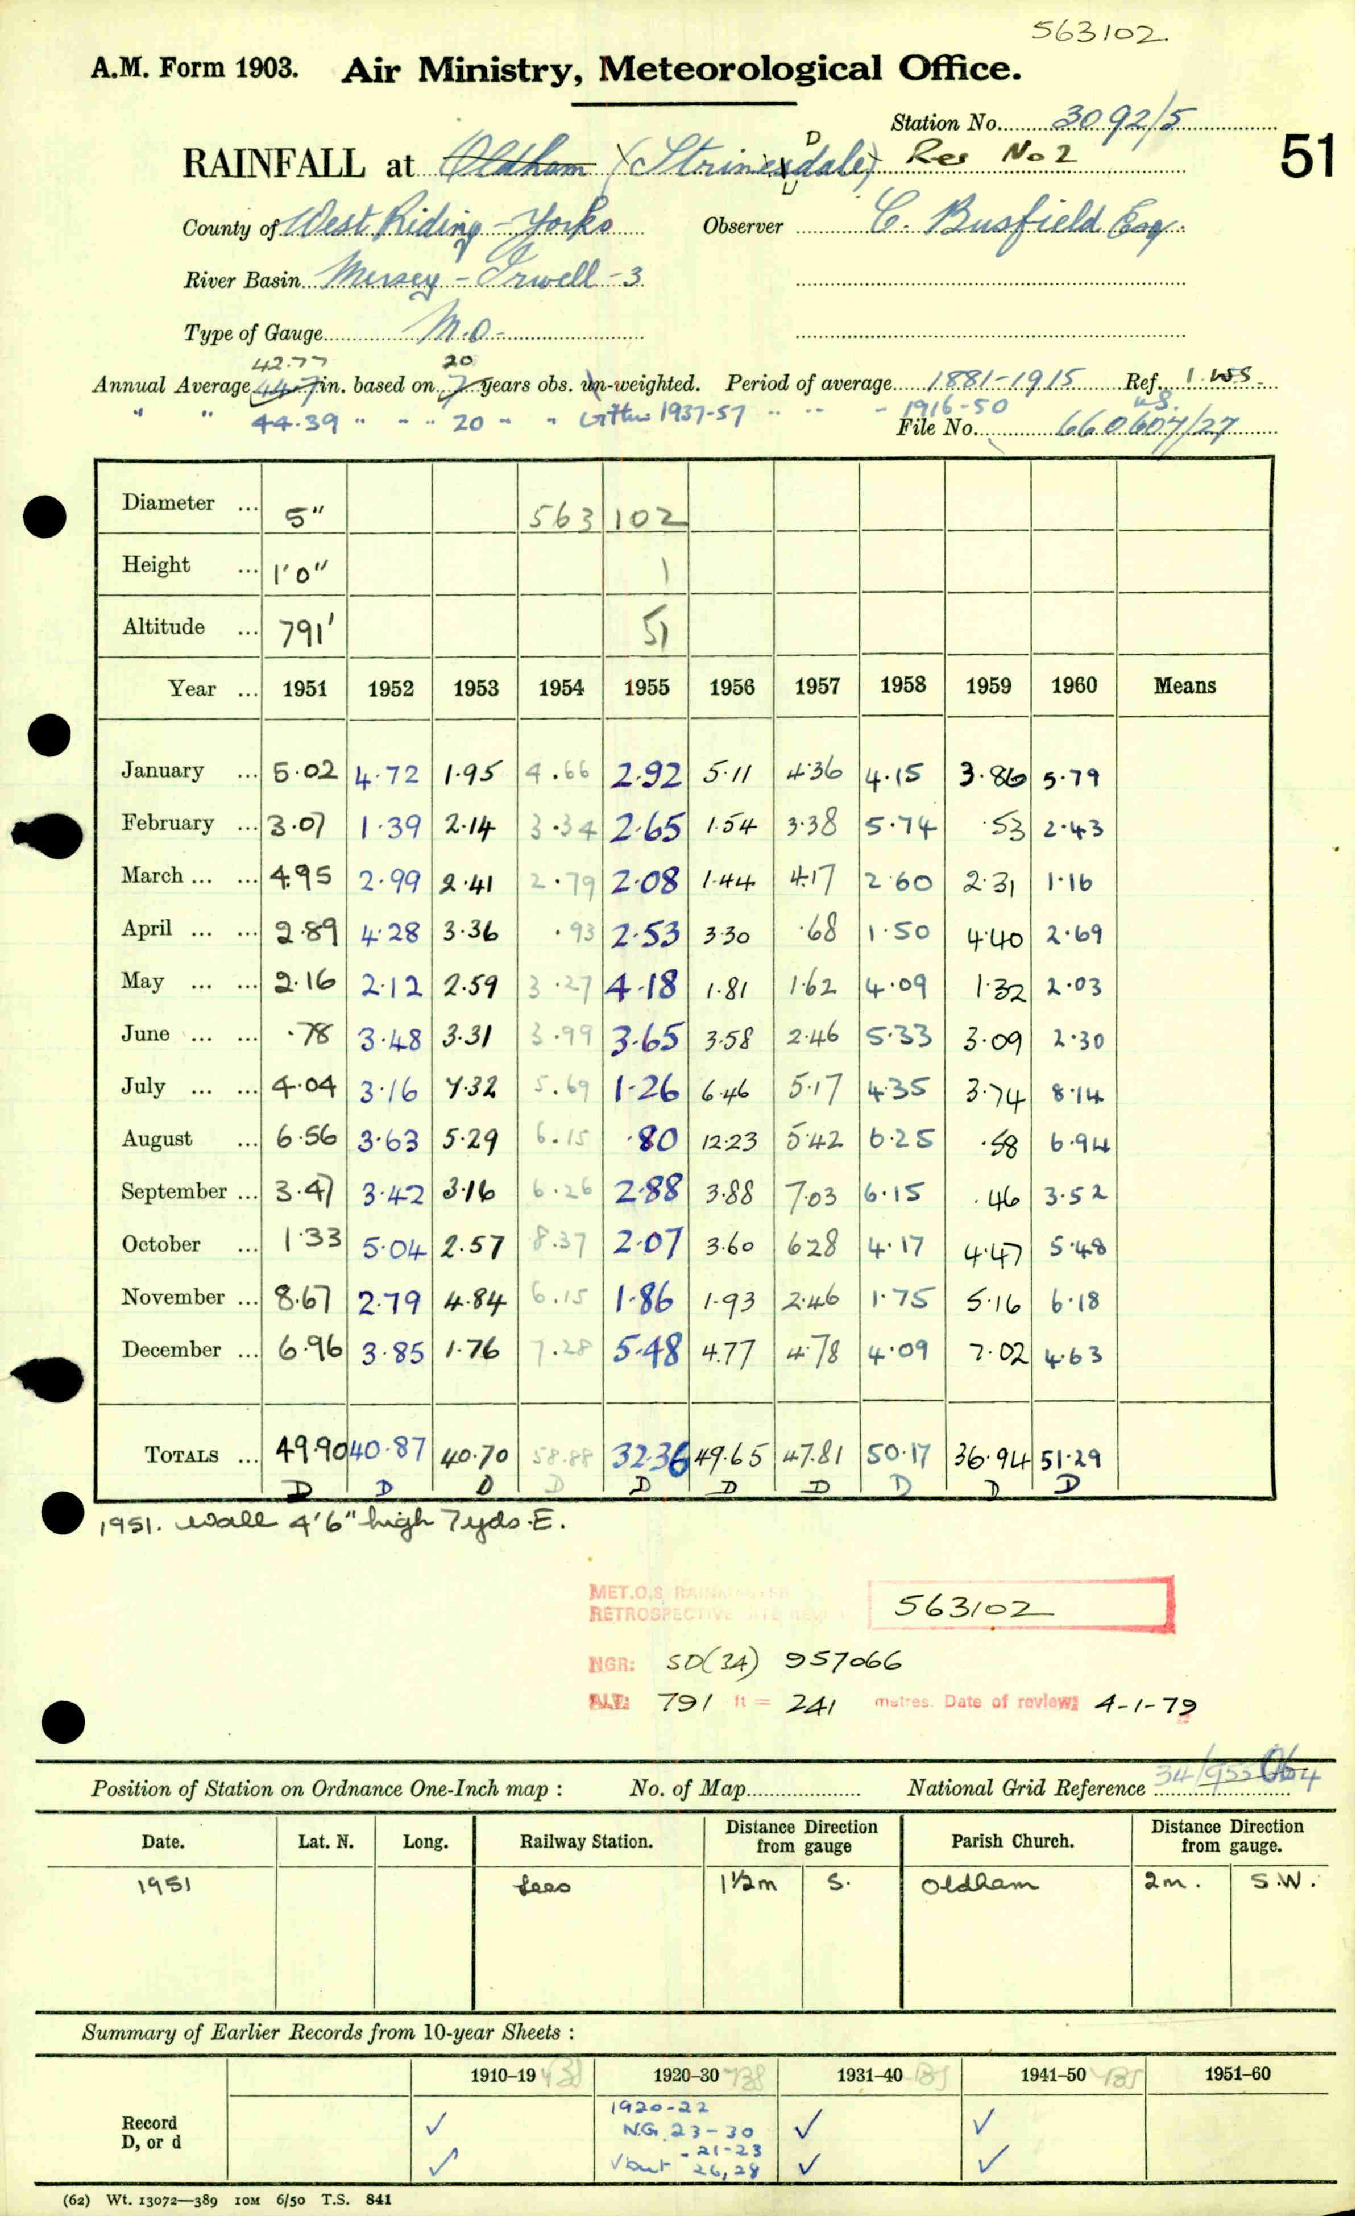 563102
A.M. Form 1903. Air Ministry, Meteorological Office.
Station No. 3092/5
RAINFALL at Oldham (Strinesdale) Res No 2
D
U
51
County of West Riding - Yorks Observer C. Busfield Esq.
River Basin Mersey - Irwell - 3
Type of Gauge M.O.
42.77 20
Annual Average 44.7 in. based on 7 years obs. un-weighted. Period of average 1881-1915 Ref. 1. WS.
" " 44.39 " " " 20 " " 1937-57 " " - 1916-50
File No. 660607/27
Diameter ... 5" 563102
Height ... 1'0" 1
Altitude ... 791' 51
Year ... 1951 1952 1953 1954 1955 1956 1957 1958 1959 1960 Means
January ... 5.02 4.72 1.95 4.66 2.92 5.11 4.36 4.15 3.86 5.79
February ... 3.07 1.39 2.14 3.34 2.65 1.54 3.38 5.74 .53 2.43
March ... ... 4.95 2.99 2.41 2.79 2.08 1.44 4.17 2.60 2.31 1.16
April ... ... 2.89 4.28 3.36 .93 2.53 3.30 .68 1.50 4.40 2.69
May ... ... 2.16 2.12 2.59 3.27 4.18 1.81 1.62 4.09 1.32 2.03
June ... ... .78 3.48 3.31 3.99 3.65 3.58 2.46 5.33 3.09 2.30
July ... ... 4.04 3.16 7.32 5.69 1.26 6.46 5.17 4.35 3.74 8.14
August ... 6.56 3.63 5.29 6.15 .80 12.23 5.42 6.25 .58 6.94
September ... 3.47 3.42 3.16 6.26 2.88 3.88 7.03 6.15 .46 3.52
October ... 1.33 5.04 2.57 8.37 2.07 3.60 6.28 4.17 4.47 5.48
November ... 8.67 2.79 4.84 6.15 1.86 1.93 2.46 1.75 5.16 6.18
December ... 6.96 3.85 1.76 7.28 5.48 4.77 4.78 4.09 7.02 4.63
TOTALS ... 49.90 40.87 40.70 58.88 32.36 49.65 47.81 50.17 36.94 51.29
D D D D D D D D D D
1951. Wall 4'6" high 7yds. E.
MET.O.8
RETROSPECTIVE SITE 563102
NGR: SD(34) 957066
ALT: 791 ft = 241 metres. Date of review: 4-1-79
Position of Station on Ordnance One-Inch map : No. of Map National Grid Reference 34/953064
Date. Lat. N. Long. Railway Station. Distance from gauge Direction Parish Church. Distance from gauge. Direction
1951 Lees 1½m S. Oldham 2m. S.W.
Summary of Earlier Records from 10-year Sheets :
1910-19 1920-30 1931-40 1941-50 1951-60
Record D, or d ✓ 1920-22 ✓ ✓
N.G. 23-30
- 21-23
✓ ✓ but 26, 28 ✓ ✓
(62) Wt. 13072—389 10M 6/50 T.S. 841